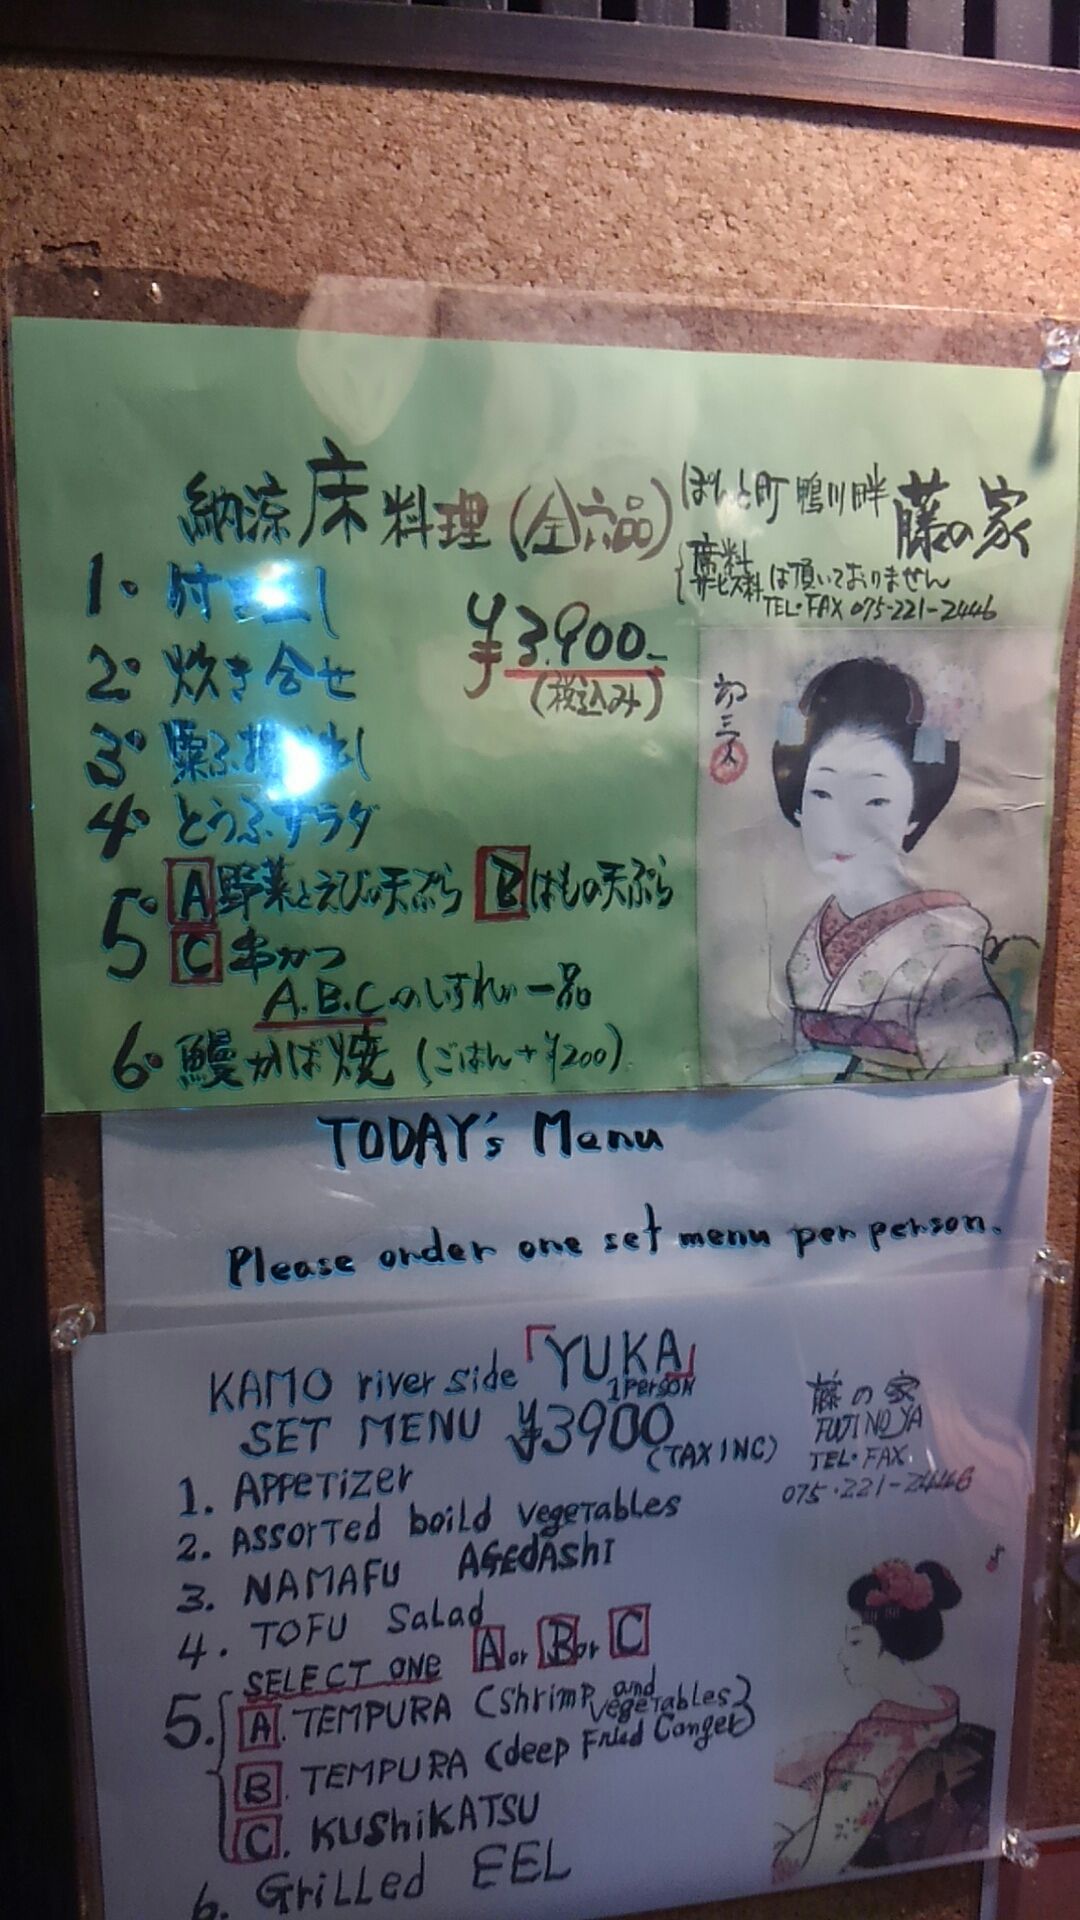 納涼床料理(全六品)
ぽんと町鴨川畔 藤の家
席料
サービス料は頂いておりません
TEL・FAX 075-221-2446
¥3.900-
(税込み)
1. 付き出し
2. 炊き合せ
3. 粟ふ揚げ出し
4. とうふサラダ
5. A 野菜とえびの天ぷら B はもの天ぷら
C 串かつ
A.B.Cのいずれか一品
6. 鰻かば焼 (ごはん+¥200)
TODAY's Menu
Please order one set menu per person.
KAMO river side 「YUKA」
1 Person
SET MENU ¥3900
(TAX INC)
藤の家
FUJI NO YA
TEL・FAX.
075・221-2446
1. APPetizer
2. Assorted boild vegetables
3. NAMAFU AGEDASHI
4. TOFU Salad
SELECT ONE A or B or C
5. A. TEMPURA (Shrimp and vegetables)
B. TEMPURA (deep Fried Conger)
C. KUSHiKATSU
6. Grilled EEL